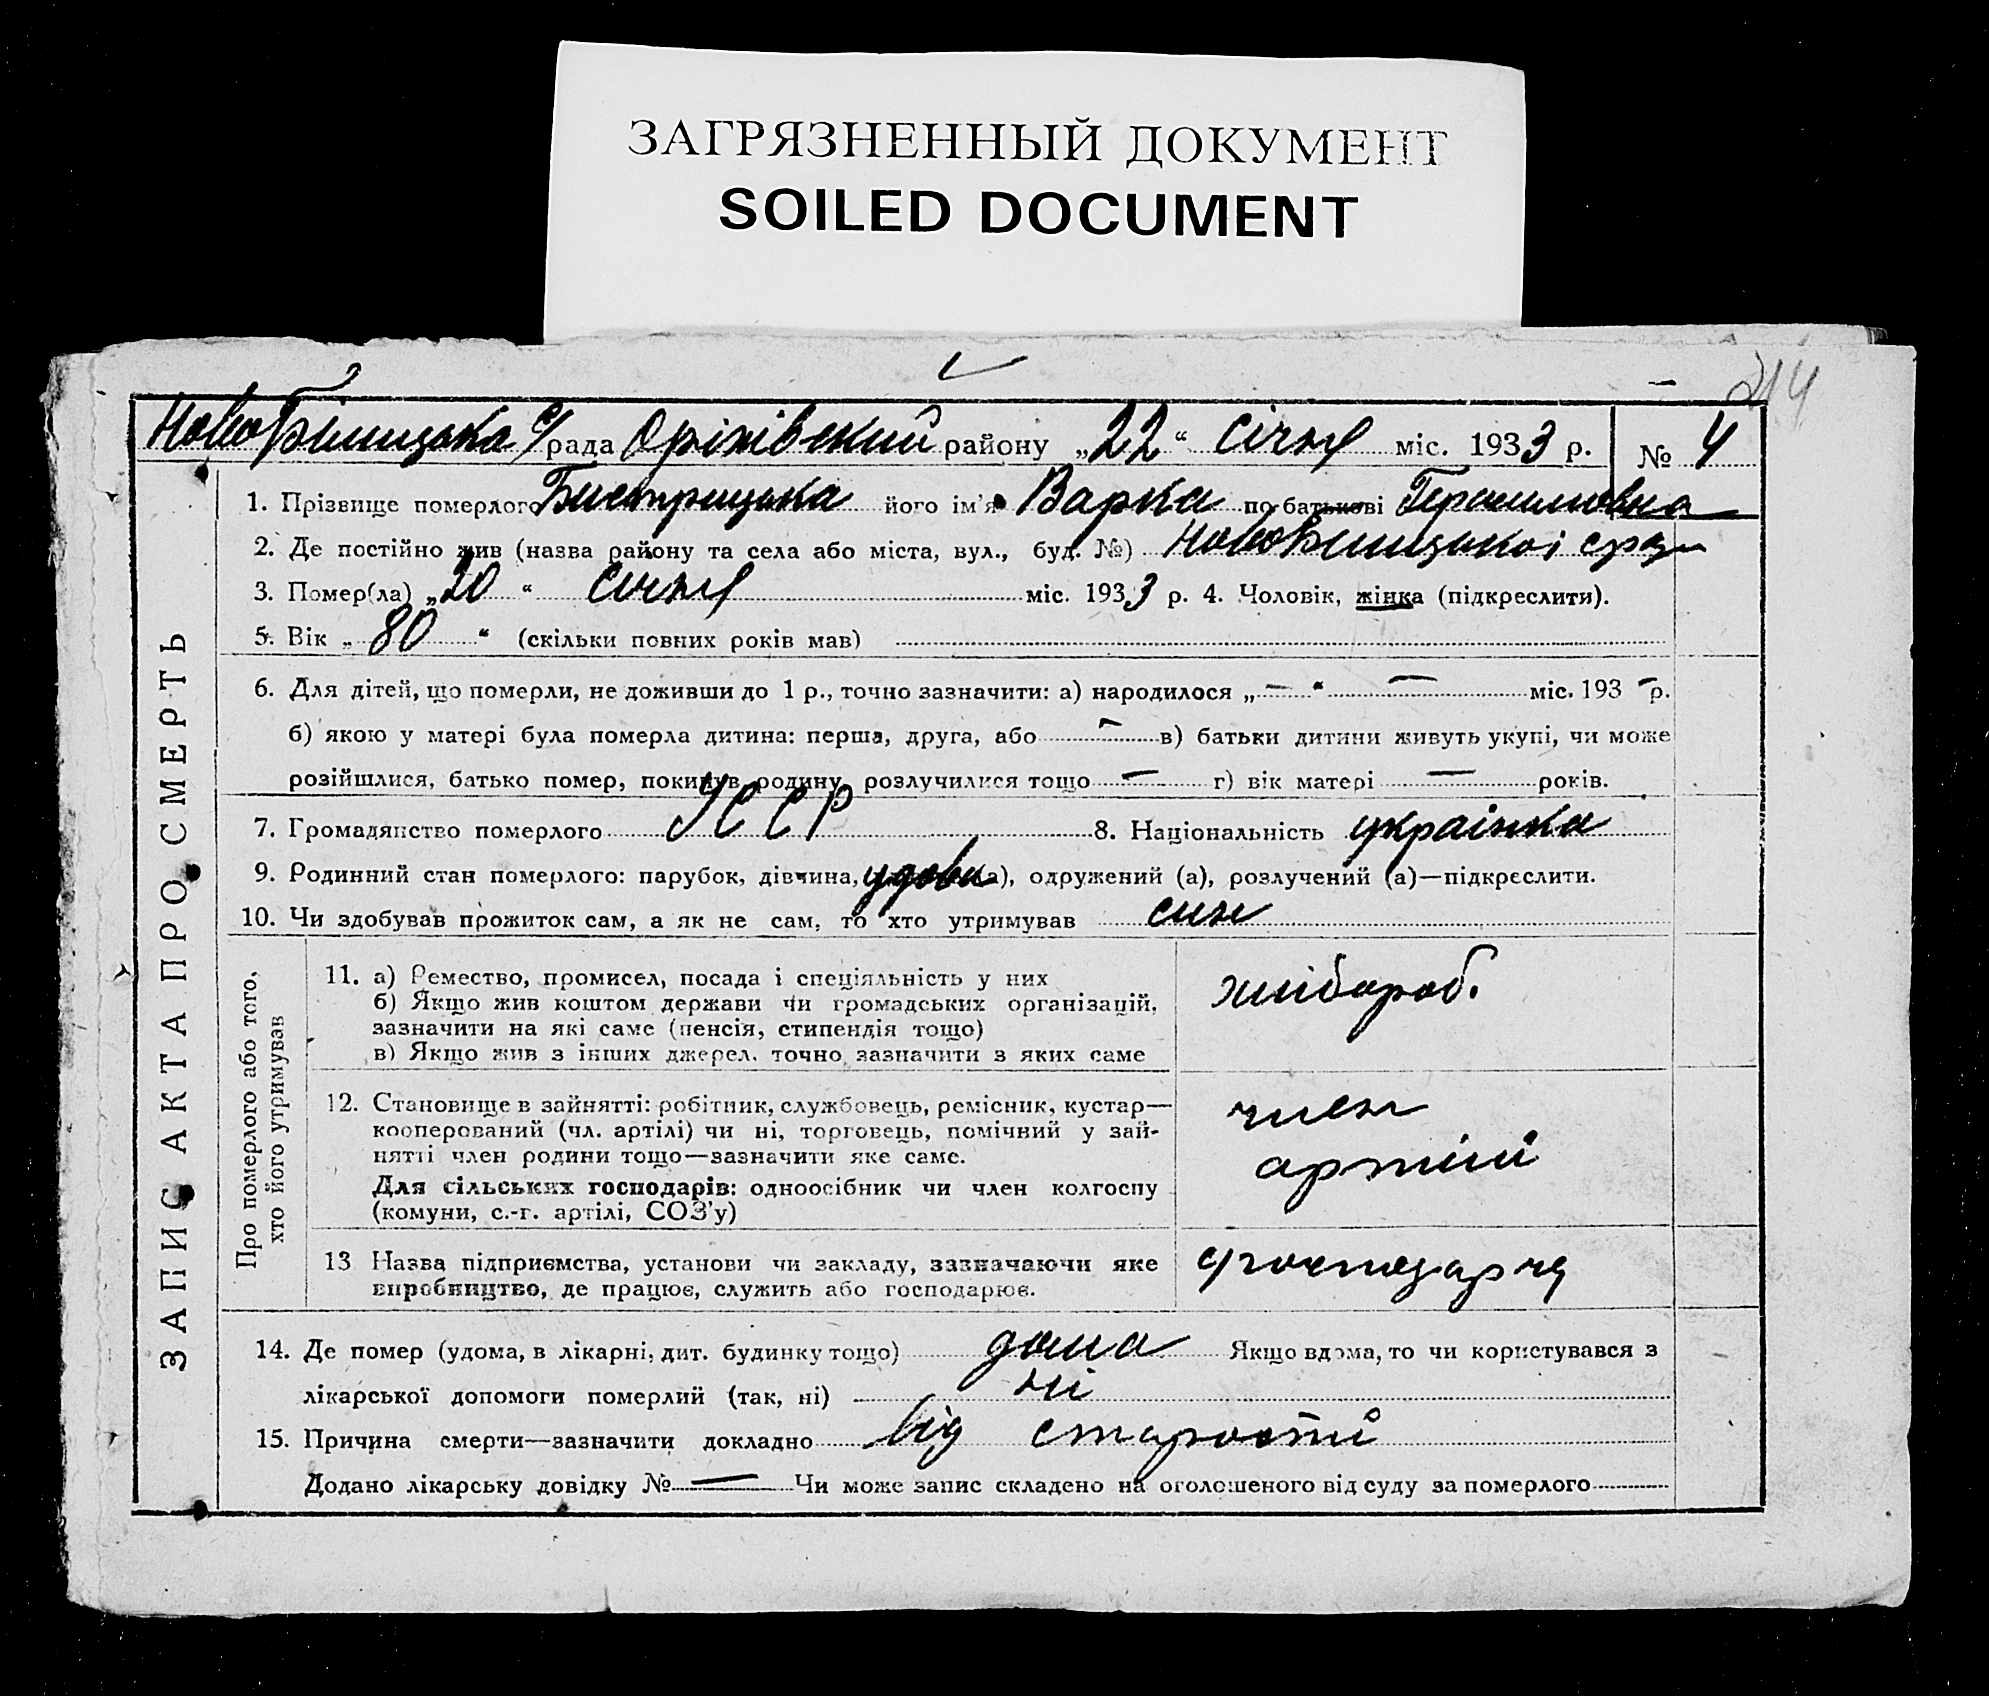 ЗАГРЯЗНЕННЫЙ ДОКУМЕНТ
SOILED DOCUMENT
214
с/рада Оріхівский району „22“ січня міс. 1933 р. № 4
1. Прізвище померлого Бистрицька його ім'я Варка по батькові Герасимовна
2. Де постійно жив (назва району та села або міста, вул., буд. №)
3. Помер(ла) „20“ січня міс. 1933 р. 4. Чоловік, жінка (підкреслити).
5. Вік „80“ (скільки повних років мав)
6. Для дітей, що померли, не доживши до 1 р., точно зазначити: а) народилося „—“ — міс. 193 – р.
б) якою у матері була померла дитина: перша, друга, або – в) батьки дитини живуть укупі, чи може
розійшлися, батько помер, покинув родину, розлучилися тощо — г) вік матері — років.
7. Громадянство померлого УССР 8. Національність українка
9. Родинний стан померлого: парубок, дівчина, удова (а), одружений (а), розлучений (а)—підкреслити.
10. Чи здобував прожиток сам, а як не сам, то хто утримував син
11. а) Ремество, промисел, посада і спеціяльність у них
б) Якщо жив коштом держави чи громадських організацій,
зазначити на які саме (пенсія, стипендія тощо)
в) Якщо жив з інших джерел, точно зазначити з яких саме
хлібороб.
12. Становище в зайнятті: робітник, службовець, ремісник, кустар—
кооперований (чл. артілі) чи ні, торговець, помічний у зай-
нятті член родини тощо—зазначити яке саме.
Для сільських господарів: одноосібник чи член колгоспу
(комуни, с.-г. артілі, СОЗ'у)
член
артілі
13 Назва підприємства, установи чи закладу, зазначаючи яке
виробництво, де працює, служить або господарює.
14. Де помер (удома, в лікарні, дит. будинку тощо) дома Якщо вдома, то чи користувався з
лікарської допомоги померлий (так, ні) ні
15. Причина смерти—зазначити докладно від старости
Додано лікарську довідку № — Чи може запис складено на оголошеного від суду за померлого
ЗАПИС АКТА ПРО СМЕРТЬ
Про померлого або того,
хто його утримував